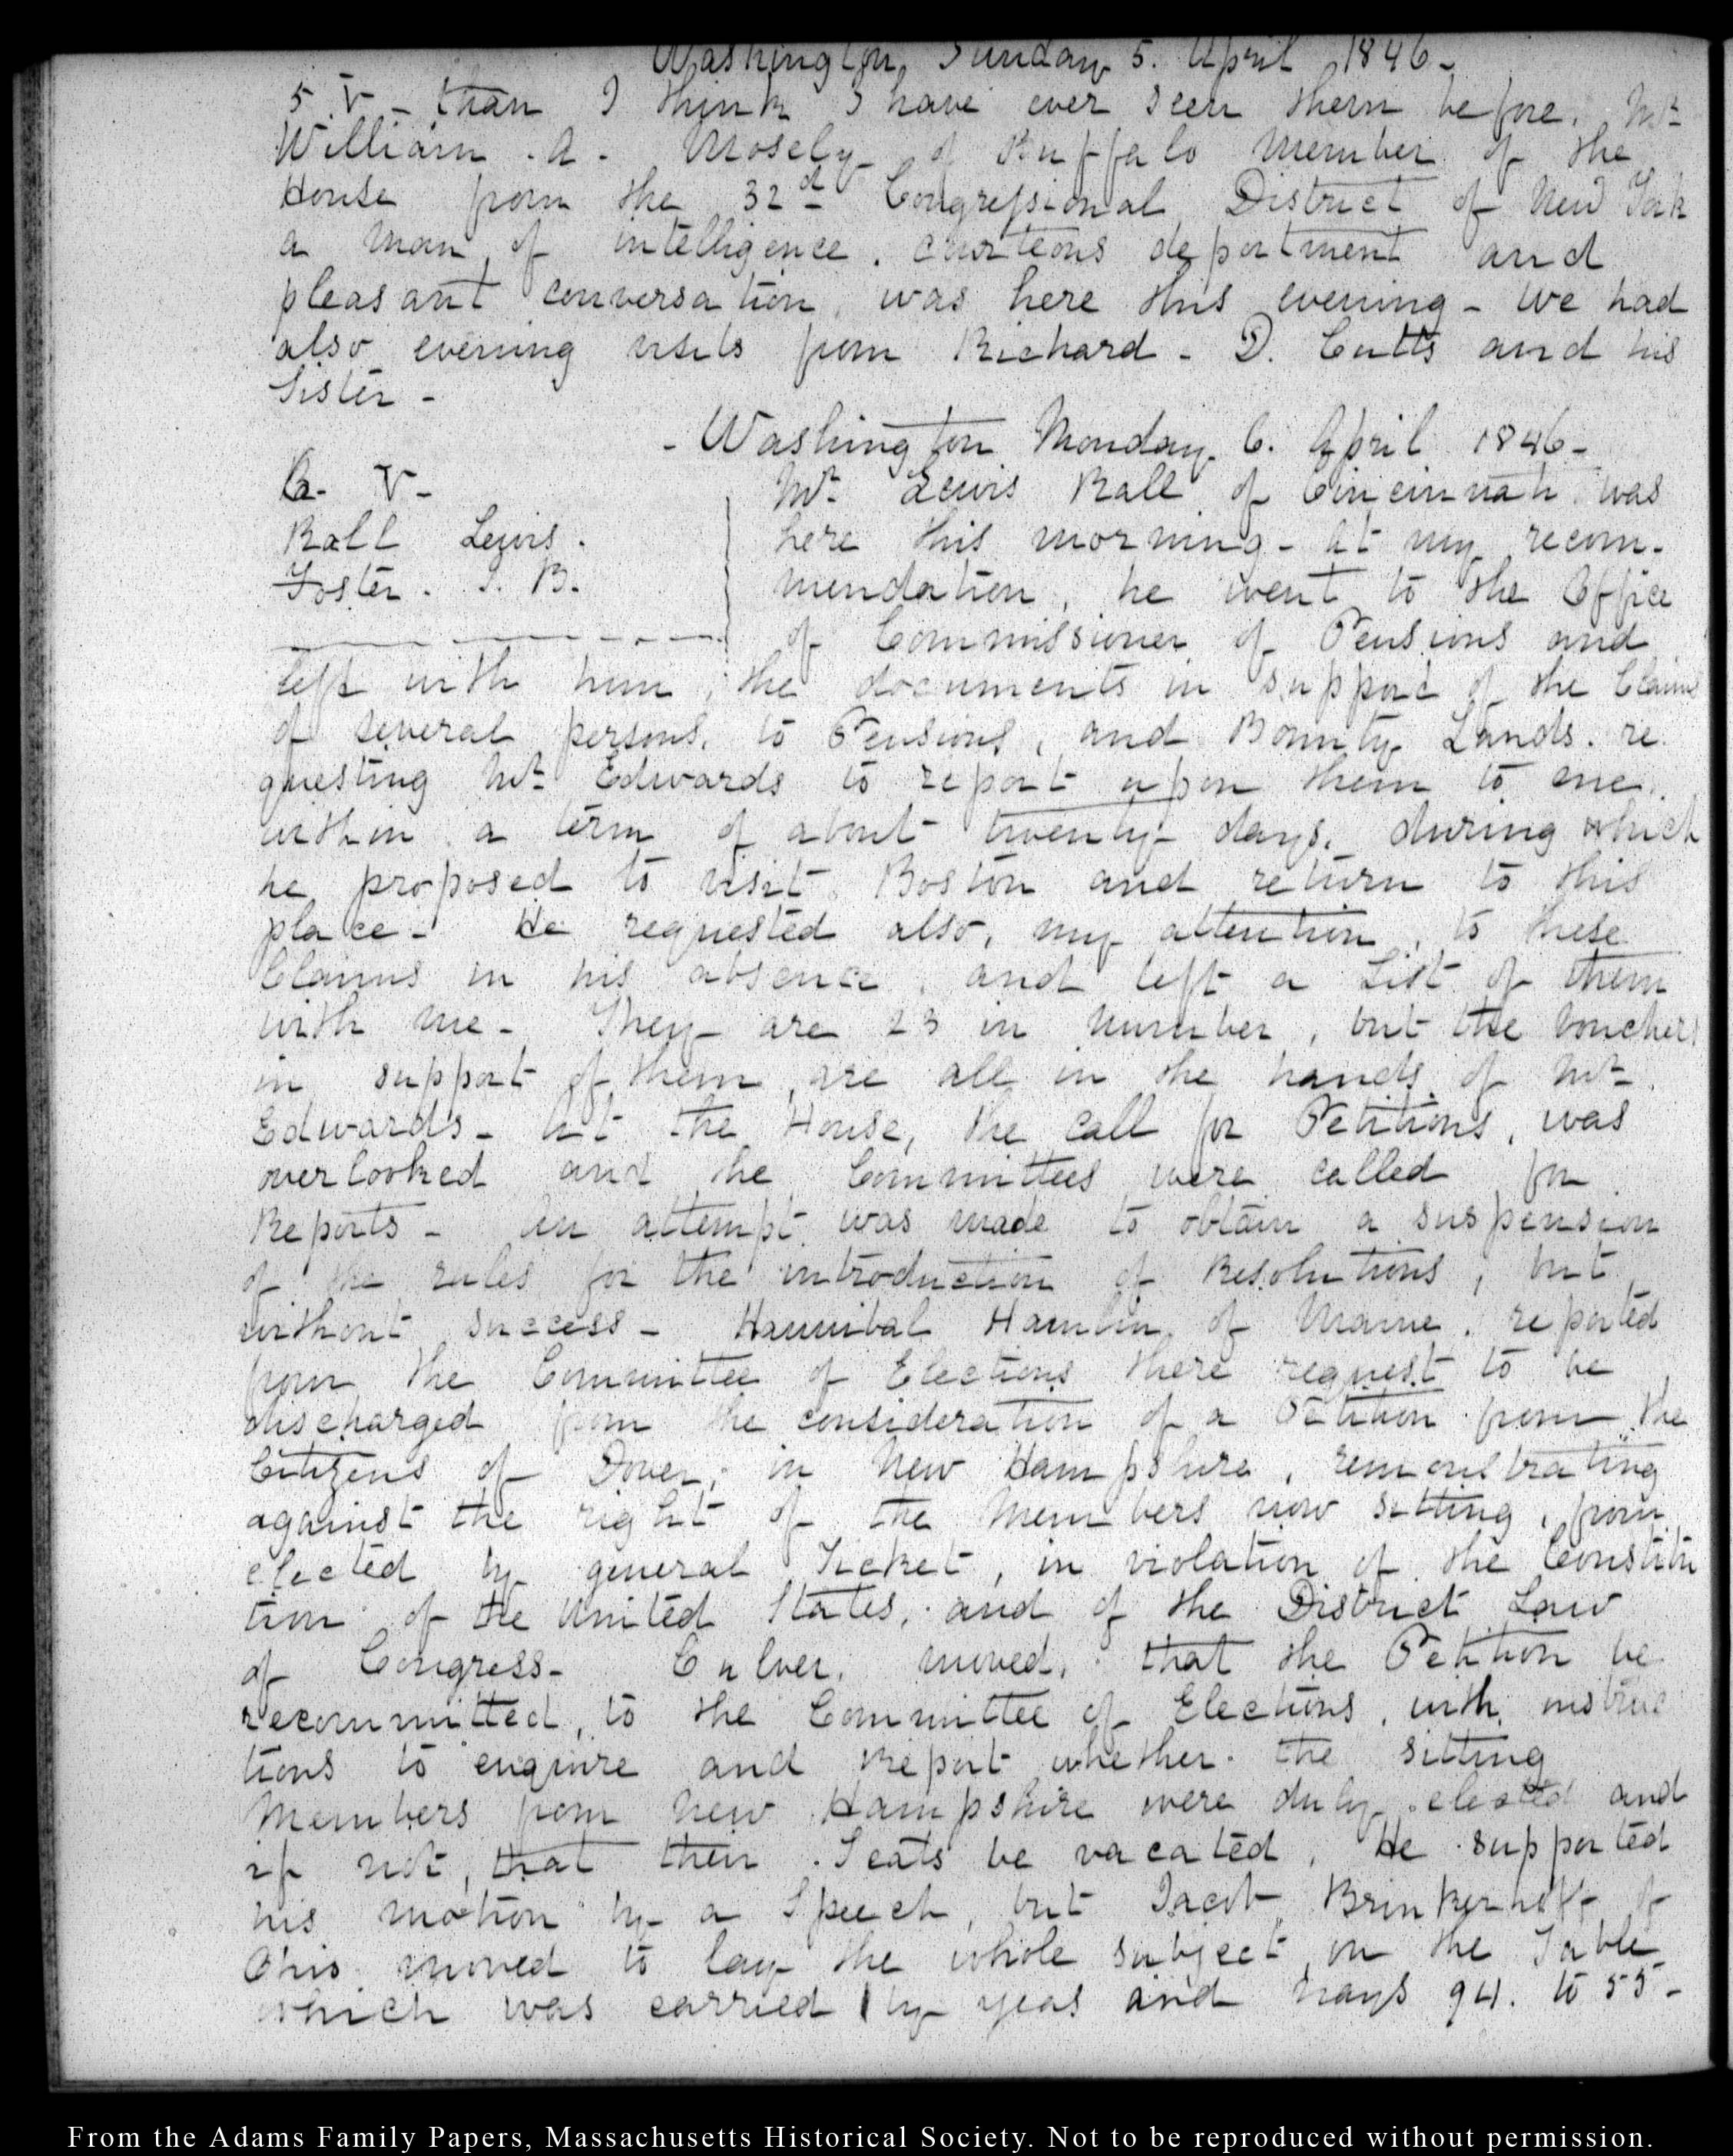 Washington, Sunday 5. April 1846-
5. V - than I think I have ever seen them before. Mr
William . A . Mosely of Buffalo Member of the
House from the 32d Congressional District of New York
a man of intelligence. courteous deportment and
pleasant conversation, was here this evening - We had
also evening visits from Richard - D. Cutts and his
Sister -
- Washington Monday 6. April 1846-
V-
Ball Lewis.
Foster. I. B.
Mr Lewis Ball of Cincinnati was
here this morning - at my recom-
mendation, he went to the Office
of Commissioner of Pensions and
left with him, the documents in support of the Claims
of several persons, to Pensions, and Bounty Lands. re-
questing Mr Edwards to report upon them to me.
within a term of about twenty days, during which
he proposed to visit Boston and return to this
place - He requested also, my attention, to these
Claims in his absence, and left a List of them
with me - They are 23 in number, but the Vouchers
in support of them, are all in the hands of Mr
Edwards - At the House, the call for Petitions, was
overlooked and the Committees were called for
Reports - An attempt was made to obtain a suspension
of the rules for the introduction of Resolutions, but
without success - Hannibal Hamlin, of Maine, reported
from the Committee of Elections there request to be
discharged from the consideration of a Petition from the
Citizens of Dover, in New Hampshire, remonstrating
against the right of the Members now sitting, from
elected by general Ticket, in violation of the Constitu
tion of the United States, and of the District Law
of Congress- Culver, moved, that the Petition be
recommitted, to the Committee of Elections, with instruc
tions to enquire and Report whether the sitting
Members from New Hampshire were duly elected and
if not, that their Seats be vacated. He supported
his motion by a Speech, but Jacob Brinkerhoff of
Ohio moved to lay the whole subject on the Table
which was carried by yeas and nays 94. to 55-
From the Adams Family Papers, Massachusetts Historical Society. Not to be reproduced without permission.